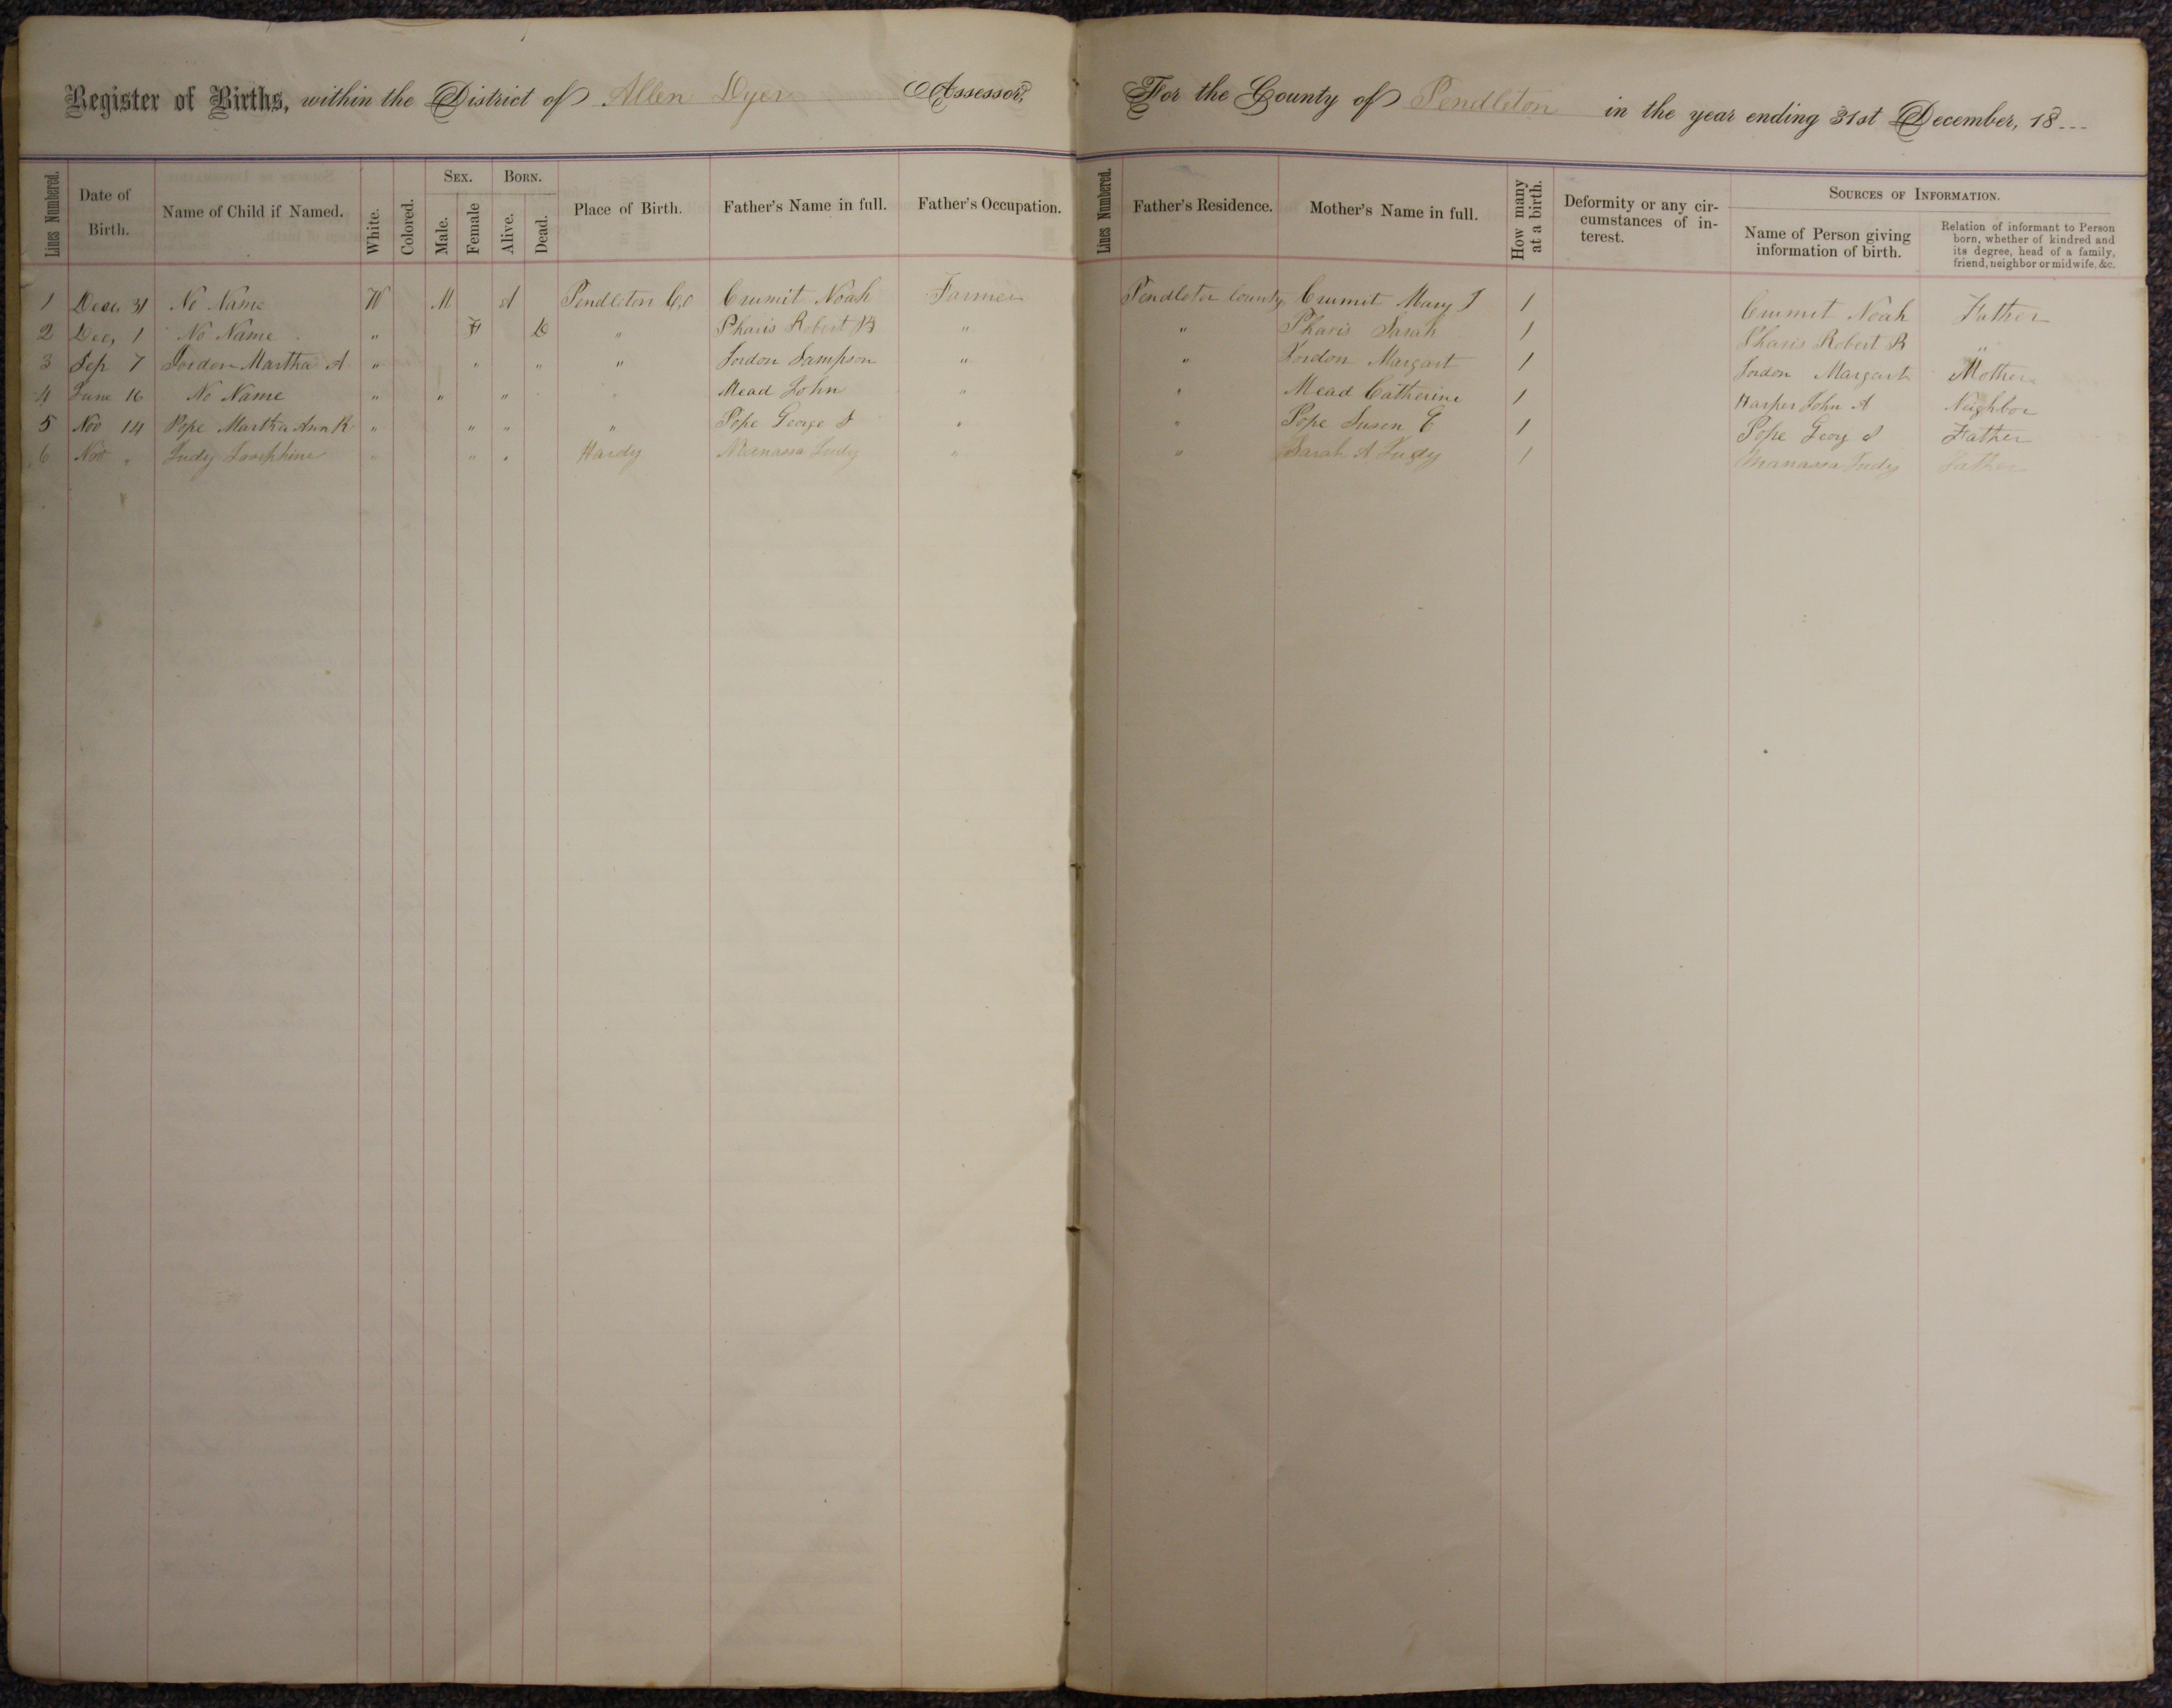 Register of Births, within the District of Allen Dyer Assessor, For the County of Pendleton in the year ending 31st December, 18
Lines Numbered. Date of Birth. Name of Child if Named. White. Colored. Sex. Male. Female Born. Alive. Dead. Place of Birth. Father's Name in full. Father's Occupation. Lines Numbered. Father's Residence. Mother's Name in full. How many at a birth. Deformity or any circumstances of interest. Sources of Information. Name of Person giving information of birth. Relation of informant to Person born, whether of kindred and its degree, head of a family, friend, neighbor or midwife, &c.
1 Dec. 31 No Name W M A Pendleton Co Crumit Noah Farmer Pendleton County Crumit Mary J 1 Crumit Noah Father
2 Dec, 1 No Name " F D " Pharis Robert B " " Pharis Sarah 1 Pharis Robert B "
3 Sep 7 Jordon Martha A " " " " Jordon Sampson " " Jordon Margart 1 Jordon Margart Mother
4 June 16 No Name " " " " Mead John " " Mead Catherine 1 Harper John A Neighbor
5 Nov 14 Pope Martha Ann R " " " " Pope George S " " Pope Susen E 1 Pope Georg S Father
6 Nov " Judy Josephine " " " Hardy Manassa Judy " " Sarah A Judy 1 Manassa Judy Father